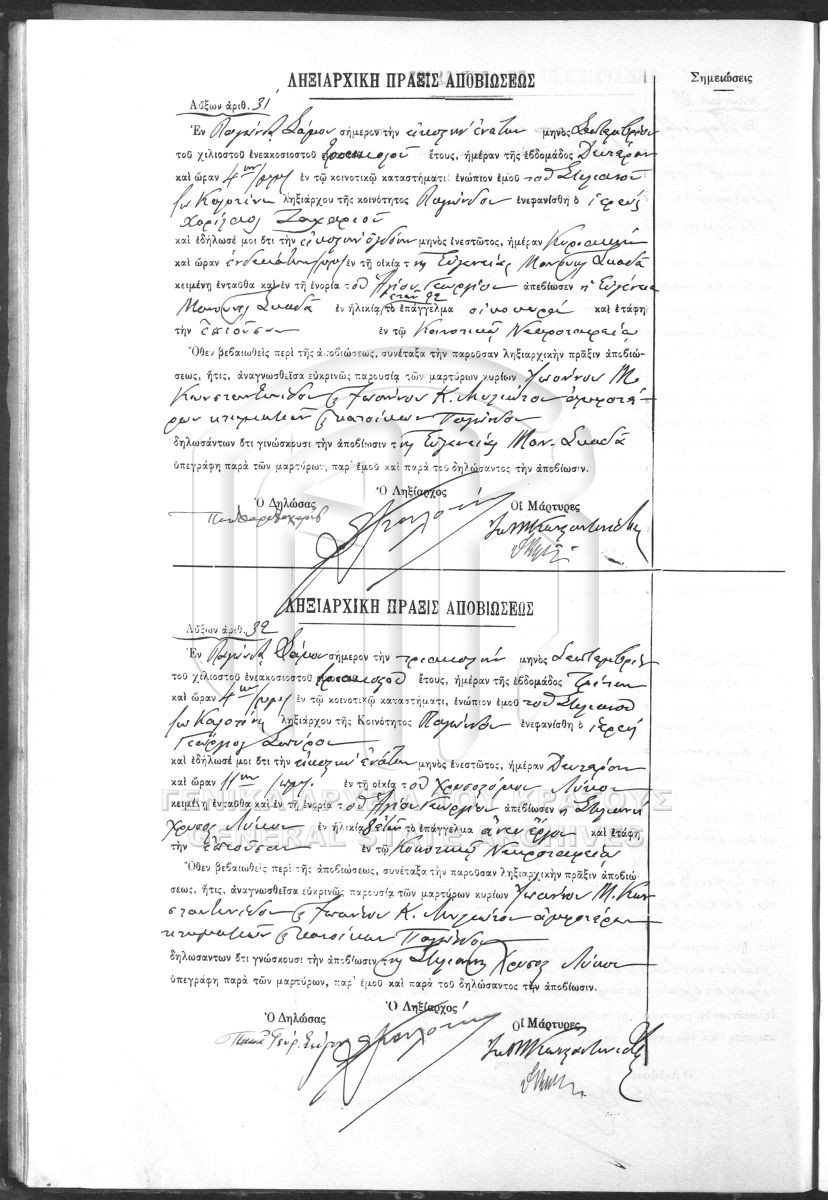 ΛΗΞΙΑΡΧΙΚΗ ΠΡΑΞΙΣ ΑΠΟΒΙΩΣΕΩΣ
Σημειώσεις
Αὔξων ἀριθ. 31
Ἐν Παγώνδα Σάμου σήμερον τὴν εἰκοστὴν ἐνάτην μηνὸς Σεπτεμβρίου
τοῦ χιλιοστοῦ ἐνεακοσιοστοῦ τριακοστοῦ ἔτους, ἡμέραν τῆς ἑβδομάδος Δευτέραν
καὶ ὥραν 4ην μμ ἐν τῷ κοινοτικῷ καταστήματι ἐνώπιον ἐμοῦ τοῦ Στυλιανοῦ
ληξιάρχου τῆς κοινότητος Παγώνδου ἐνεφανίσθη ὁ ἱερεὺς
Ζαχαρίου
καὶ ἐδήλωσέ μοι ὅτι τὴν εἰκοστὴν ὀγδόην μηνὸς ἐνεστῶτος, ἡμέραν Κυριακὴν
καὶ ὥραν ἑνδεκάτην ἐν τῇ οἰκίᾳ τῆς Εὐγενείας Μανουὴλ Σκαδᾶ
κειμένῃ ἐνταῦθα καὶ ἐν τῇ ἐνορίᾳ τοῦ Ἁγίου Γεωργίου ἀπεβίωσεν ἡ Εὐγένεια
Μανουὴλ Σκαδᾶ ἐν ἡλικίᾳ ἐτῶν 92 τὸ ἐπάγγελμα οἰκοκυρά καὶ ἐτάφη
τὴν ἐπιοῦσαν ἐν τῷ Κοινοτικῷ Νεκροταφείῳ
Ὅθεν βεβαιωθεὶς περὶ τῆς ἀποβιώσεως, συνέταξα τὴν παροῦσαν ληξιαρχικὴν πρᾶξιν ἀποβιώ-
σεως, ἥτις, ἀναγνωσθεῖσα εὐκρινῶς παρουσίᾳ τῶν μαρτύρων κυρίων Ἰωάννου Μ.
Κωνσταντινίδου & Ἰωάννου Κ. ἀμφοτέ-
ρων κτηματιῶν & κατοίκων Παγώνδου
δηλωσάντων ὅτι γινώσκουσι τὴν ἀποβίωσιν τῆς Εὐγενείας Μαν. Σκαδᾶ
ὑπεγράφη παρὰ τῶν μαρτύρων, παρ' ἐμοῦ καὶ παρὰ τοῦ δηλώσαντος τὴν ἀποβίωσιν.
Ὁ Δηλώσας Ὁ Ληξίαρχος Οἱ Μάρτυρες
ΛΗΞΙΑΡΧΙΚΗ ΠΡΑΞΙΣ ΑΠΟΒΙΩΣΕΩΣ
Αὔξων ἀριθ. 32
Ἐν Παγώνδα Σάμου σήμερον τὴν τριακοστὴν μηνὸς Σεπτεμβρίου
τοῦ χιλιοστοῦ ἐνεακοσιοστοῦ τριακοστοῦ ἔτους, ἡμέραν τῆς ἑβδομάδος Τρίτην
καὶ ὥραν 4ην μμ ἐν τῷ κοινοτικῷ καταστήματι, ἐνώπιον ἐμοῦ τοῦ Στυλιανοῦ
ληξιάρχου τῆς Κοινότητος Παγώνδου ἐνεφανίσθη ὁ ἱερεὺς
Γεώργιος Σπύρου
καὶ ἐδήλωσέ μοι ὅτι τὴν εἰκοστὴν ἐνάτην μηνὸς ἐνεστῶτος, ἡμέραν Δευτέραν
καὶ ὥραν 11ην πμμ. ἐν τῇ οἰκίᾳ τοῦ Χρυσοστόμου Λύκου
κειμένῃ ἐνταῦθα καὶ ἐν τῇ ἐνορίᾳ τοῦ Ἁγίου Γεωργίου ἀπεβίωσεν ἡ Στυλιανὴ
Χρυσοστ Λύκου ἐν ἡλικίᾳ ἐτῶν τὸ ἐπάγγελμα ἄνευ ἔργου καὶ ἐτάφη
τὴν ἐπιοῦσαν ἐν τῷ Κοινοτικῷ Νεκροταφείῳ
Ὅθεν βεβαιωθεὶς περὶ τῆς ἀποβιώσεως, συνέταξα τὴν παροῦσαν ληξιαρχικὴν πρᾶξιν ἀποβιώ-
σεως, ἥτις, ἀναγνωσθεῖσα εὐκρινῶς παρουσίᾳ τῶν μαρτύρων κυρίων Ἰωάννου Μ. Κων
σταντινίδου & Ἰωάννου Κ. ἀμφοτέρων
κτηματιῶν & κατοίκων Παγώνδου
δηλωσάντων ὅτι γνώσκουσι τὴν ἀποβίωσιν τῆς Στυλιανῆς Χρυσοστ Λύκου
ὑπεγράφη παρὰ τῶν μαρτύρων, παρ' ἐμοῦ καὶ παρὰ τοῦ δηλώσαντος τὴν ἀποβίωσιν.
Ὁ Δηλώσας Ὁ Ληξίαρχος Οἱ Μάρτυρες
ΓΕΝΙΚΑ ΑΡΧΕΙΑ ΤΟΥ ΚΡΑΤΟΥΣ
GENERAL STATE ARCHIVES